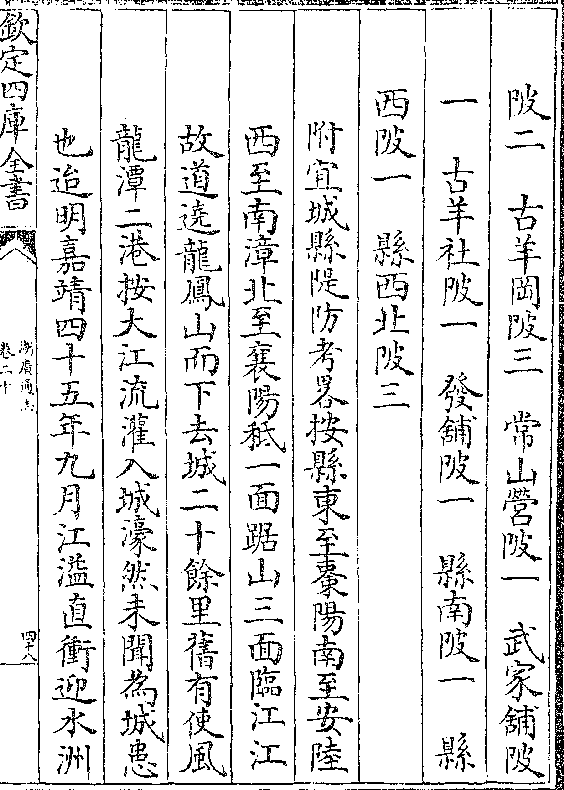 陂二　古羊岡陂三　常山營陂一　武家舖陂
一　古羊社陂一　發舖陂一　縣南陂一　縣
西陂一　縣西北陂三
附宜城縣隄防考畧按縣東至棗陽南至安陸
西至南漳北至襄陽秪一面踞山三面臨江江
故道遶龍鳳山而下去城二十餘里舊有使風
龍潭二港按大江流灌入城濠然未聞為城患
也迨明嘉靖四十五年九月江溢直衝迎水洲
欽定四庫全書
湖廣通志
卷二十
四十八